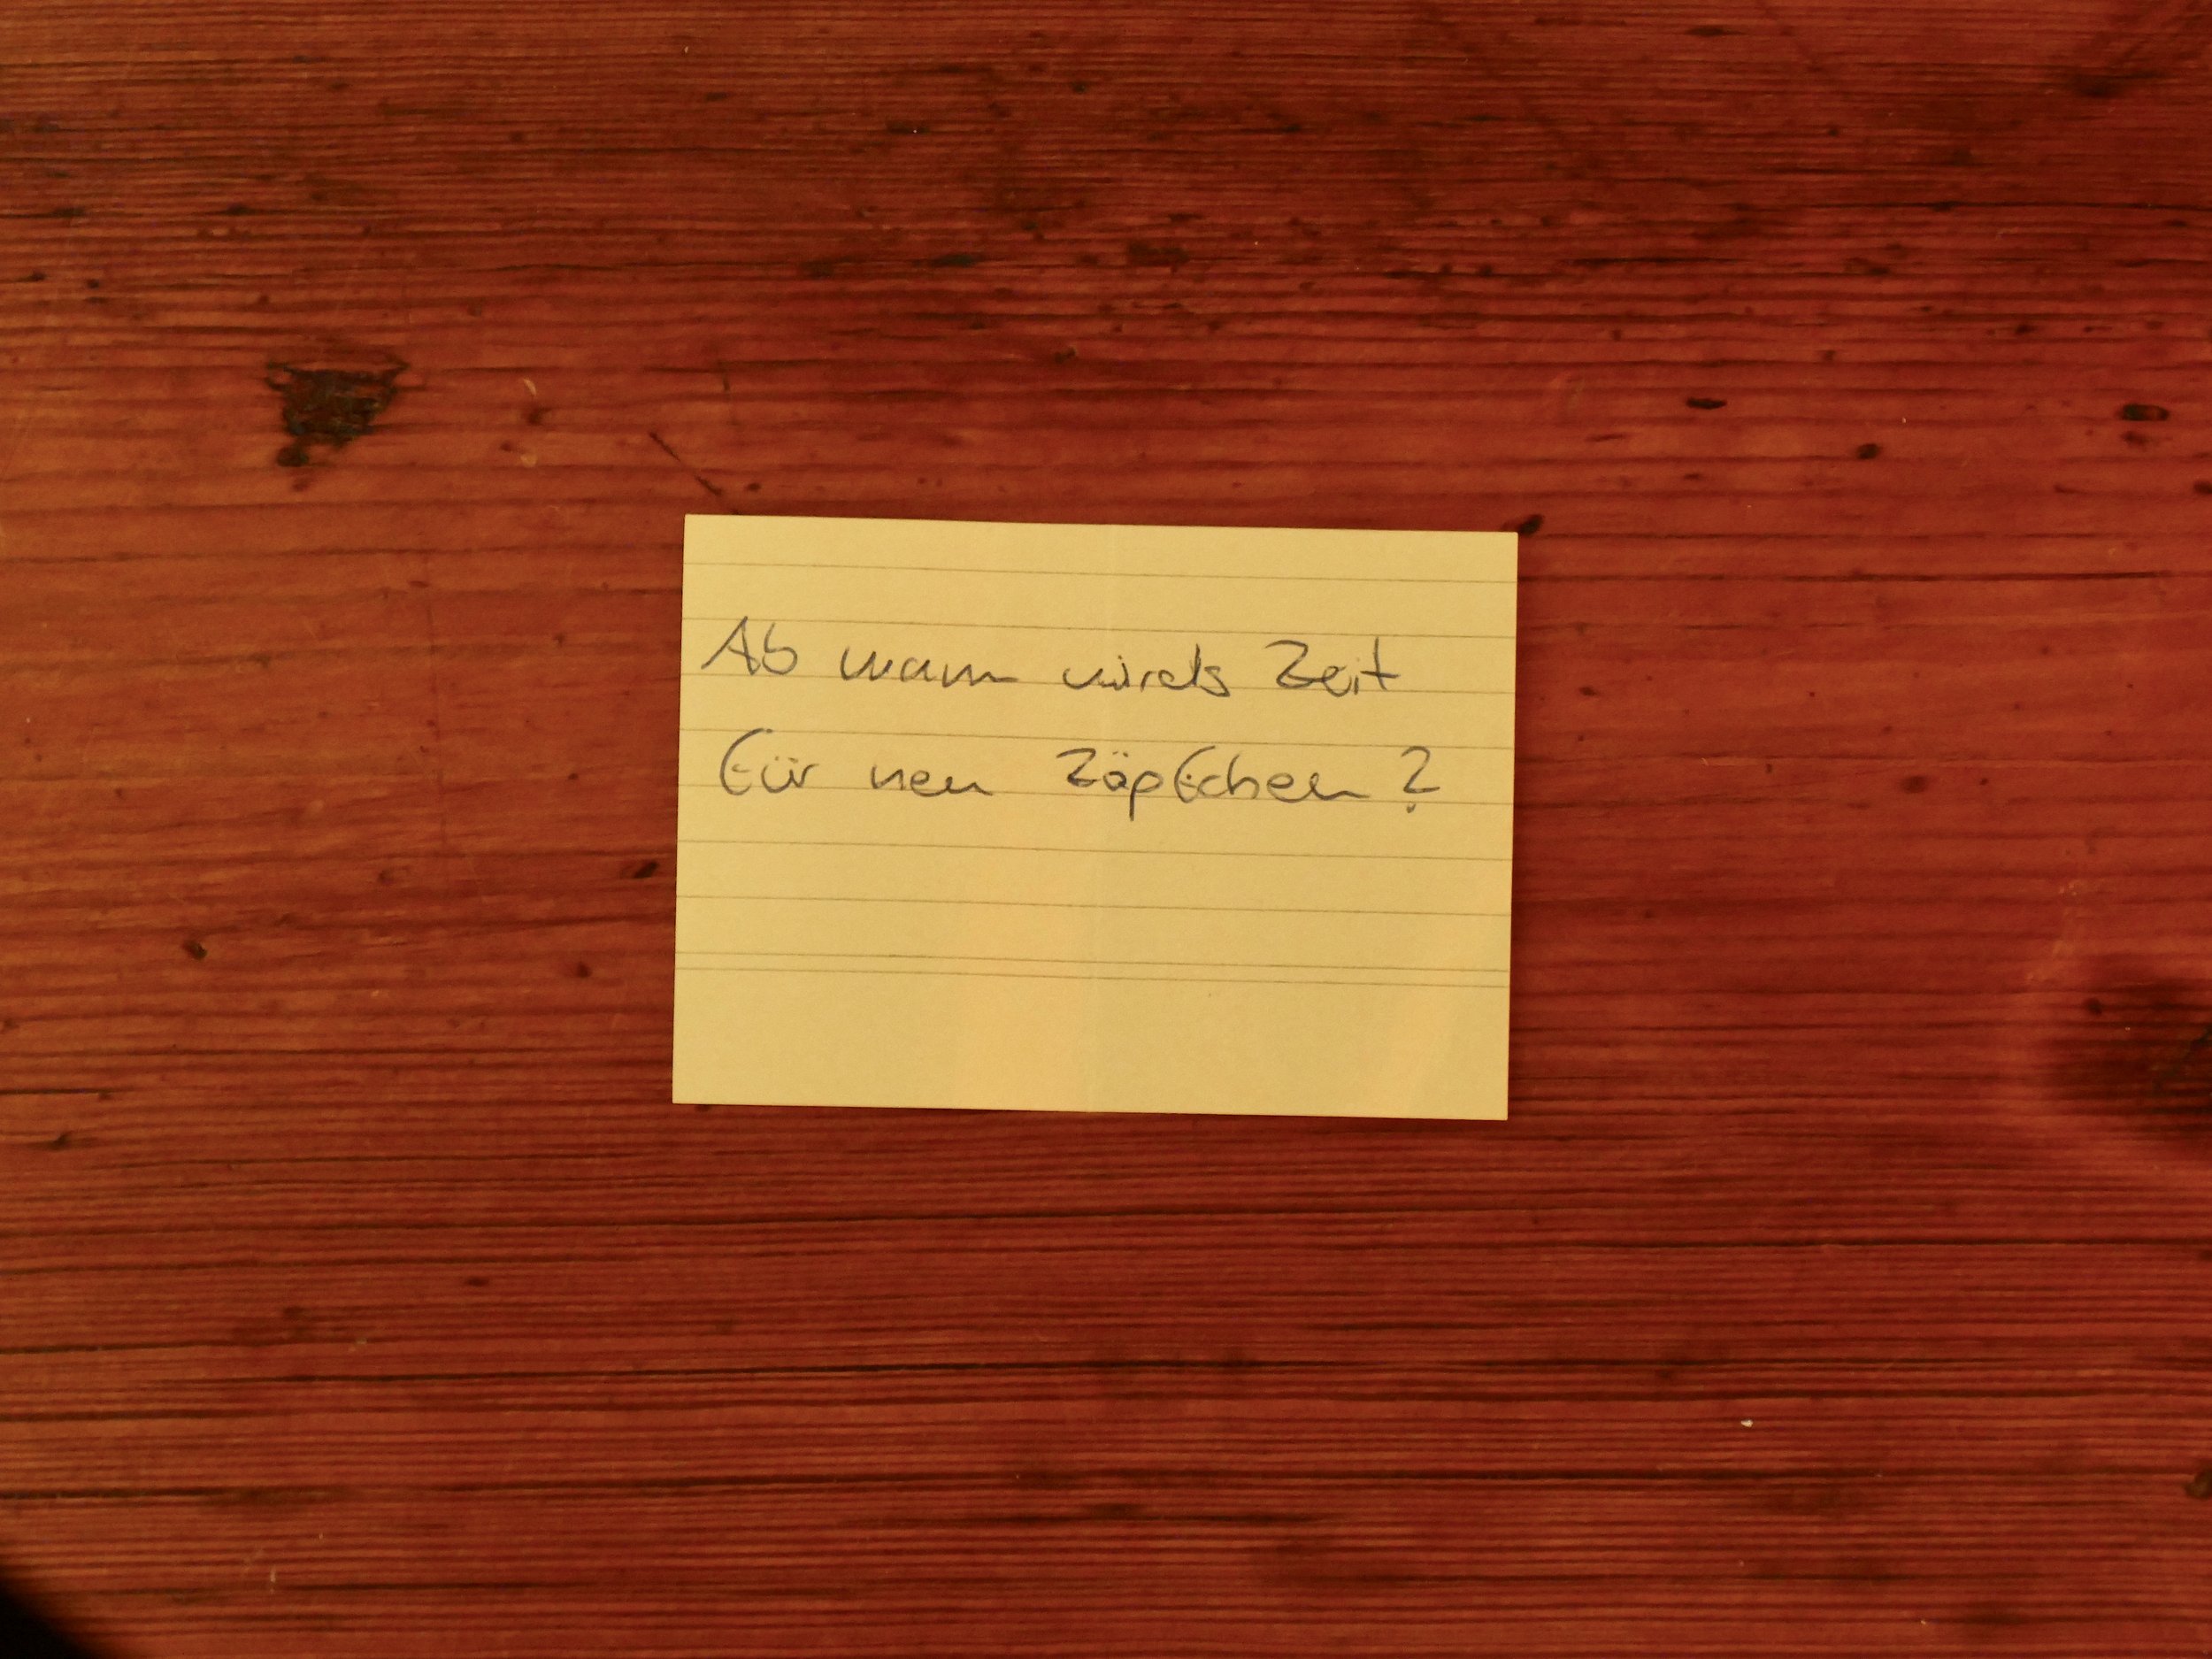 Ab wann wirds Zeit
für nen Zäpfchen?